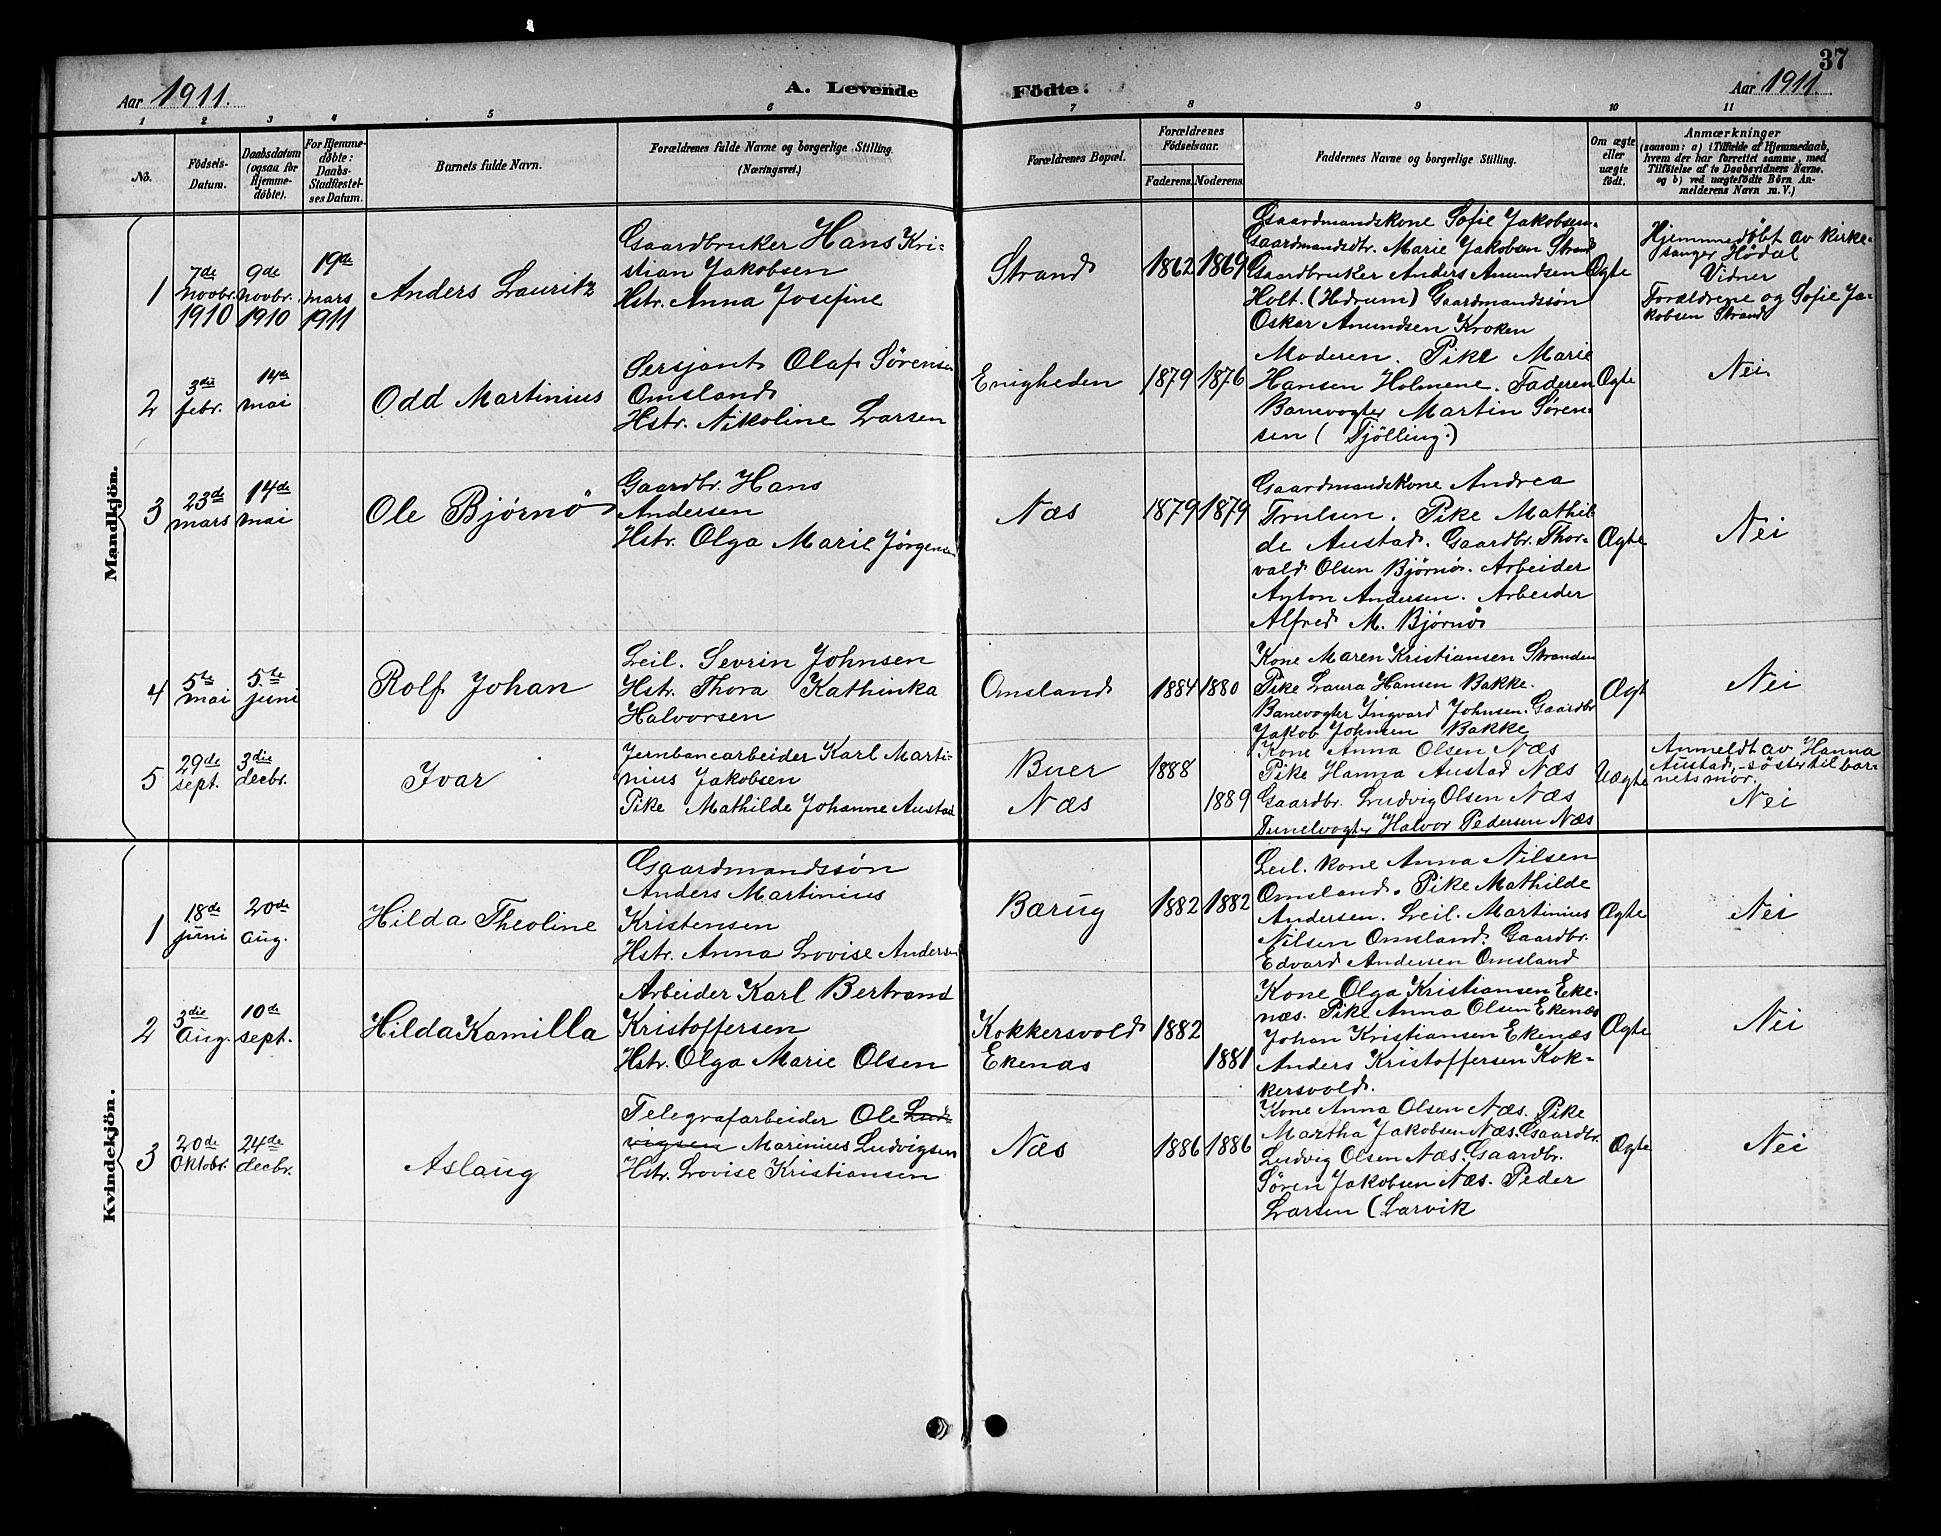 37
Aar 1911.
A. Levende
Födte.
Aar 1911.
1 2 3 4 5 6 7 8 9 10 11
No.
Födsels-
Datum.
Daabsdatum
(ogsaa for
Hjemme-
døbte).
For Hjemme-
døbte:
Daabs-
Stadfæstel-
ses Datum.
Barnets fulde Navn.
Forældrenes fulde Navne og borgerlige Stilling.
(Næringsvei.)
Forældrenes Bopæl.
Forældrenes
Födselsaar.
Faderens.
Moderens.
Faddernes Navne og borgerlige Stilling.
Om ægte
eller
uægte
født.
Anmærkninger
(saasom: a) i Tilfælde af Hjemmedaab,
hvem der har forrettet samme, med
Tilføielse af to Daabsvidners Navne,
og b) ved uægtefödte Börn An-
melderens Navn m. V.)
Mandkjön.
1
7de
novbr.
1910
9de
novbr.
1910
19de
mars
1911
Anders Lauritz
Gaardbruker Hans Kri-
stian Jakobsen
Hstr. Anna Josefine
Strand
1862
1869
Gaardmandskone Sofie Jakobsen.
Gaardmandsdtr. Marie Jakobsen Strand
Gaardbruker Anders Amundsen
Holt. (Hedrum) Gaardmandssøn
Oskar Amundsen Kroken
Ægte
Hjemmedøbt av kirke-
sanger Hødal
Vidner
Forældrene og Sofie Ja-
kobsen Strand
2
3die
febr.
14de
mai
Odd Martinius
Sersjant Olaf Sørensen
Omsland
Hstr. Nikoline Larsen
Enigheden
1879
1876
Moderen. Pike Marie
Hansen Holmene. Faderen
Banevogter Martin Søren-
sen (Tjölling.)
Ægte
Nei
3
23de
mars
14de
mai
Ole Bjørnø
Gaardbr. Hans
Andersen
Hstr. Olga Marie Jørgensen
Næs
1879
1879
Gaardmandskone Andrea
Trulsen. Pike Mathil
de Austad. Gaardbr. Thor-
vald Olsen Bjørnø. Arbeider
Anton Andersen. Arbeider
Alfred M. Bjørnø
Ægte
Nei
4
5te
mai
5te
juni
Rolf Johan
Leil. Sevrin Johnsen
Hstr. Thora Kathinka
Halvorsen
Omsland
1884
1880
Kone Maren Kristiansen Stranden
Pike Laura Hansen Bakke.
Banevogter Ingvard Johnsen. Gaardbr
Jakob Johnsen Bakke
Ægt
Nei
5
29de
sept.
3die
decbr.
Ivar
Jernbanearbeider Karl Marti-
nius Jakobsen
Pike Mathilde Johanne Austad
Buer
Næs
1888
1889
Kone Anna Olsen Næs
Pike Hanna Austad Næs
Gaardbr. Ludvig Olsen Næs
Tunelvogter Halvor Pedersen Næs
Uægte
Anmeldt av Hanna
Austad, søster til bar-
nets mor.
Nei
Kvindekjön.
1
18de
juni
20de
aug.
Hilda Theoline
Gaardmandssön
Anders Martinius
Kristensen
Hstr. Anna Lovise Andersen
Barug
1882
1882
Leil. kone Anna Nilsen
Omsland. Pike Mathilde
Andersen. Leil. Martinius
Nilsen Omsland. Gaardbr.
Edvard Andersen Omsland
Ægte
Nei
2
3die
Aug.
10de
sept.
Hilda Kamilla
Arbeider Karl Bertrand
Kristoffersen
Hstr. Olga Marie Olsen
Kokkersvold
Ekenæs
1882
1881
Kone Olga Kristiansen Eke-
næs. Pike Anna Olsen Ekenæs
Johan Kristiansen Ekenæs
Anders Kristoffersen Kok-
kersvold.
Ægte
Nei
3
20de
Oktobr.
24de
decbr.
Aslaug
Telegrafarbeider Ole Lud-
vigsen Marinius Ludvigsen
Hstr. Lovise Kristiansen
Næs
1886
1886
Kone Anna Olsen Næs. Pike
Martha Jakobsen Næs. Gaardbr.
Ludvig Olsen Næs. Gaardbr.
Søren Jakobsen Næs. Peder
Larsen (Larvik
Ægte
Nei